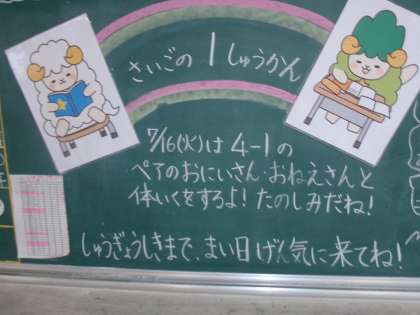 さいごの1しゅうかん
7/16(火)は4-1の
ペアのおにいさん・おねえさんと
体いくをするよ！たのしみだね！
しゅうぎょうしきまで、まい日げん気に来てね！